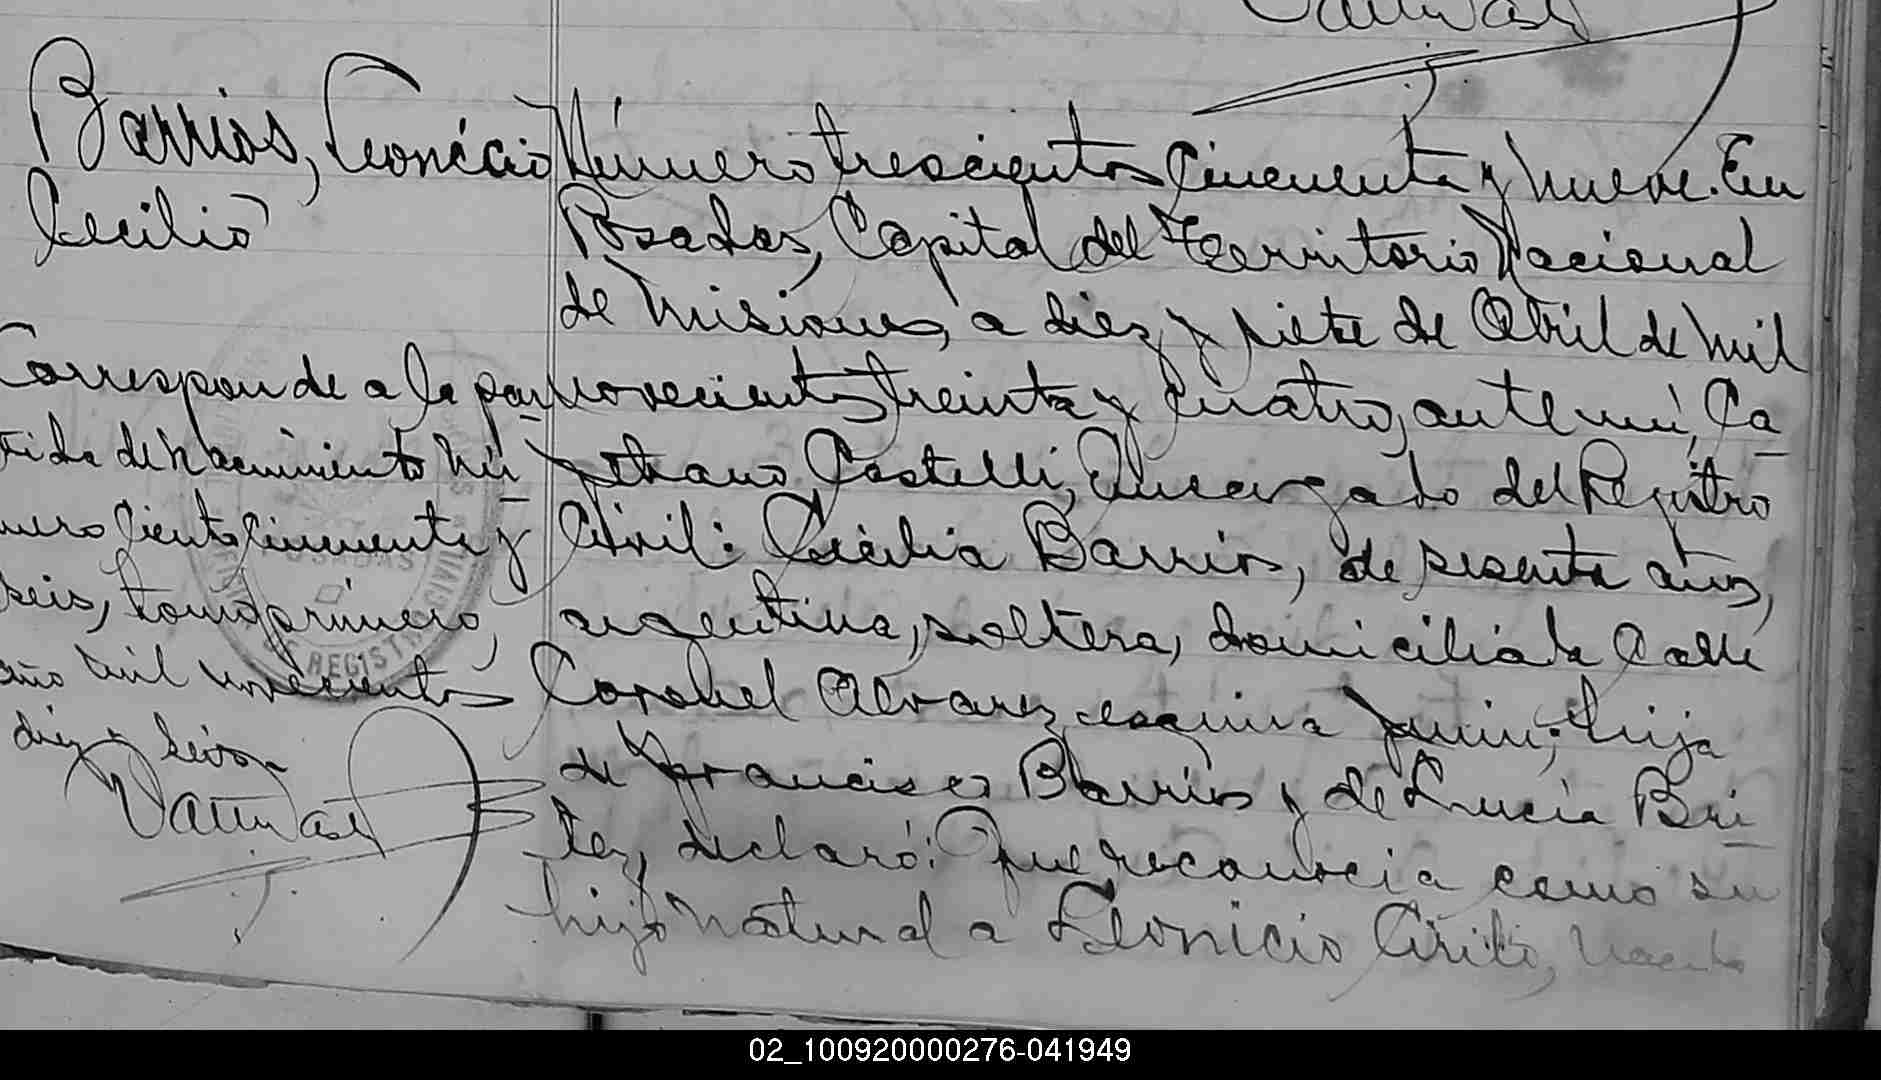 Barrios, Leonicio
Cecilio
Corresponde a la par
tida de nacimiento nú
mero ciento cincuenta y
seis, tomo primero,
año mil novecientos
diez y seis.
Número trescientos cincuenta y nueve. En
Posadas, Capital del Territorio Nacional
de Misiones, a diez y siete de Abril de mil
novecientos treinta y cuatro, ante mí, Ca
yetano Castelli, Encargado del Registro
Civil: Cecilia Barrios, de sesenta años,
argentina, soltera, domiciliada Calle
Coronel Alvarez esquina Junin; hija
de Francisco Barrios y de Lucia Bri
tez, declaró: Que reconocia como su
hijo natural a Leonicio Cirilo, nacido
REGISTRO CIVIL
POSADAS
02_100920000276-041949